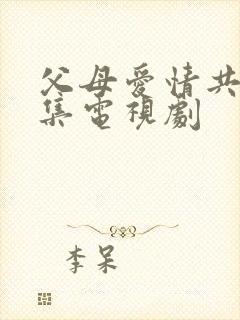 父母愛情共
集電視劇
李呆